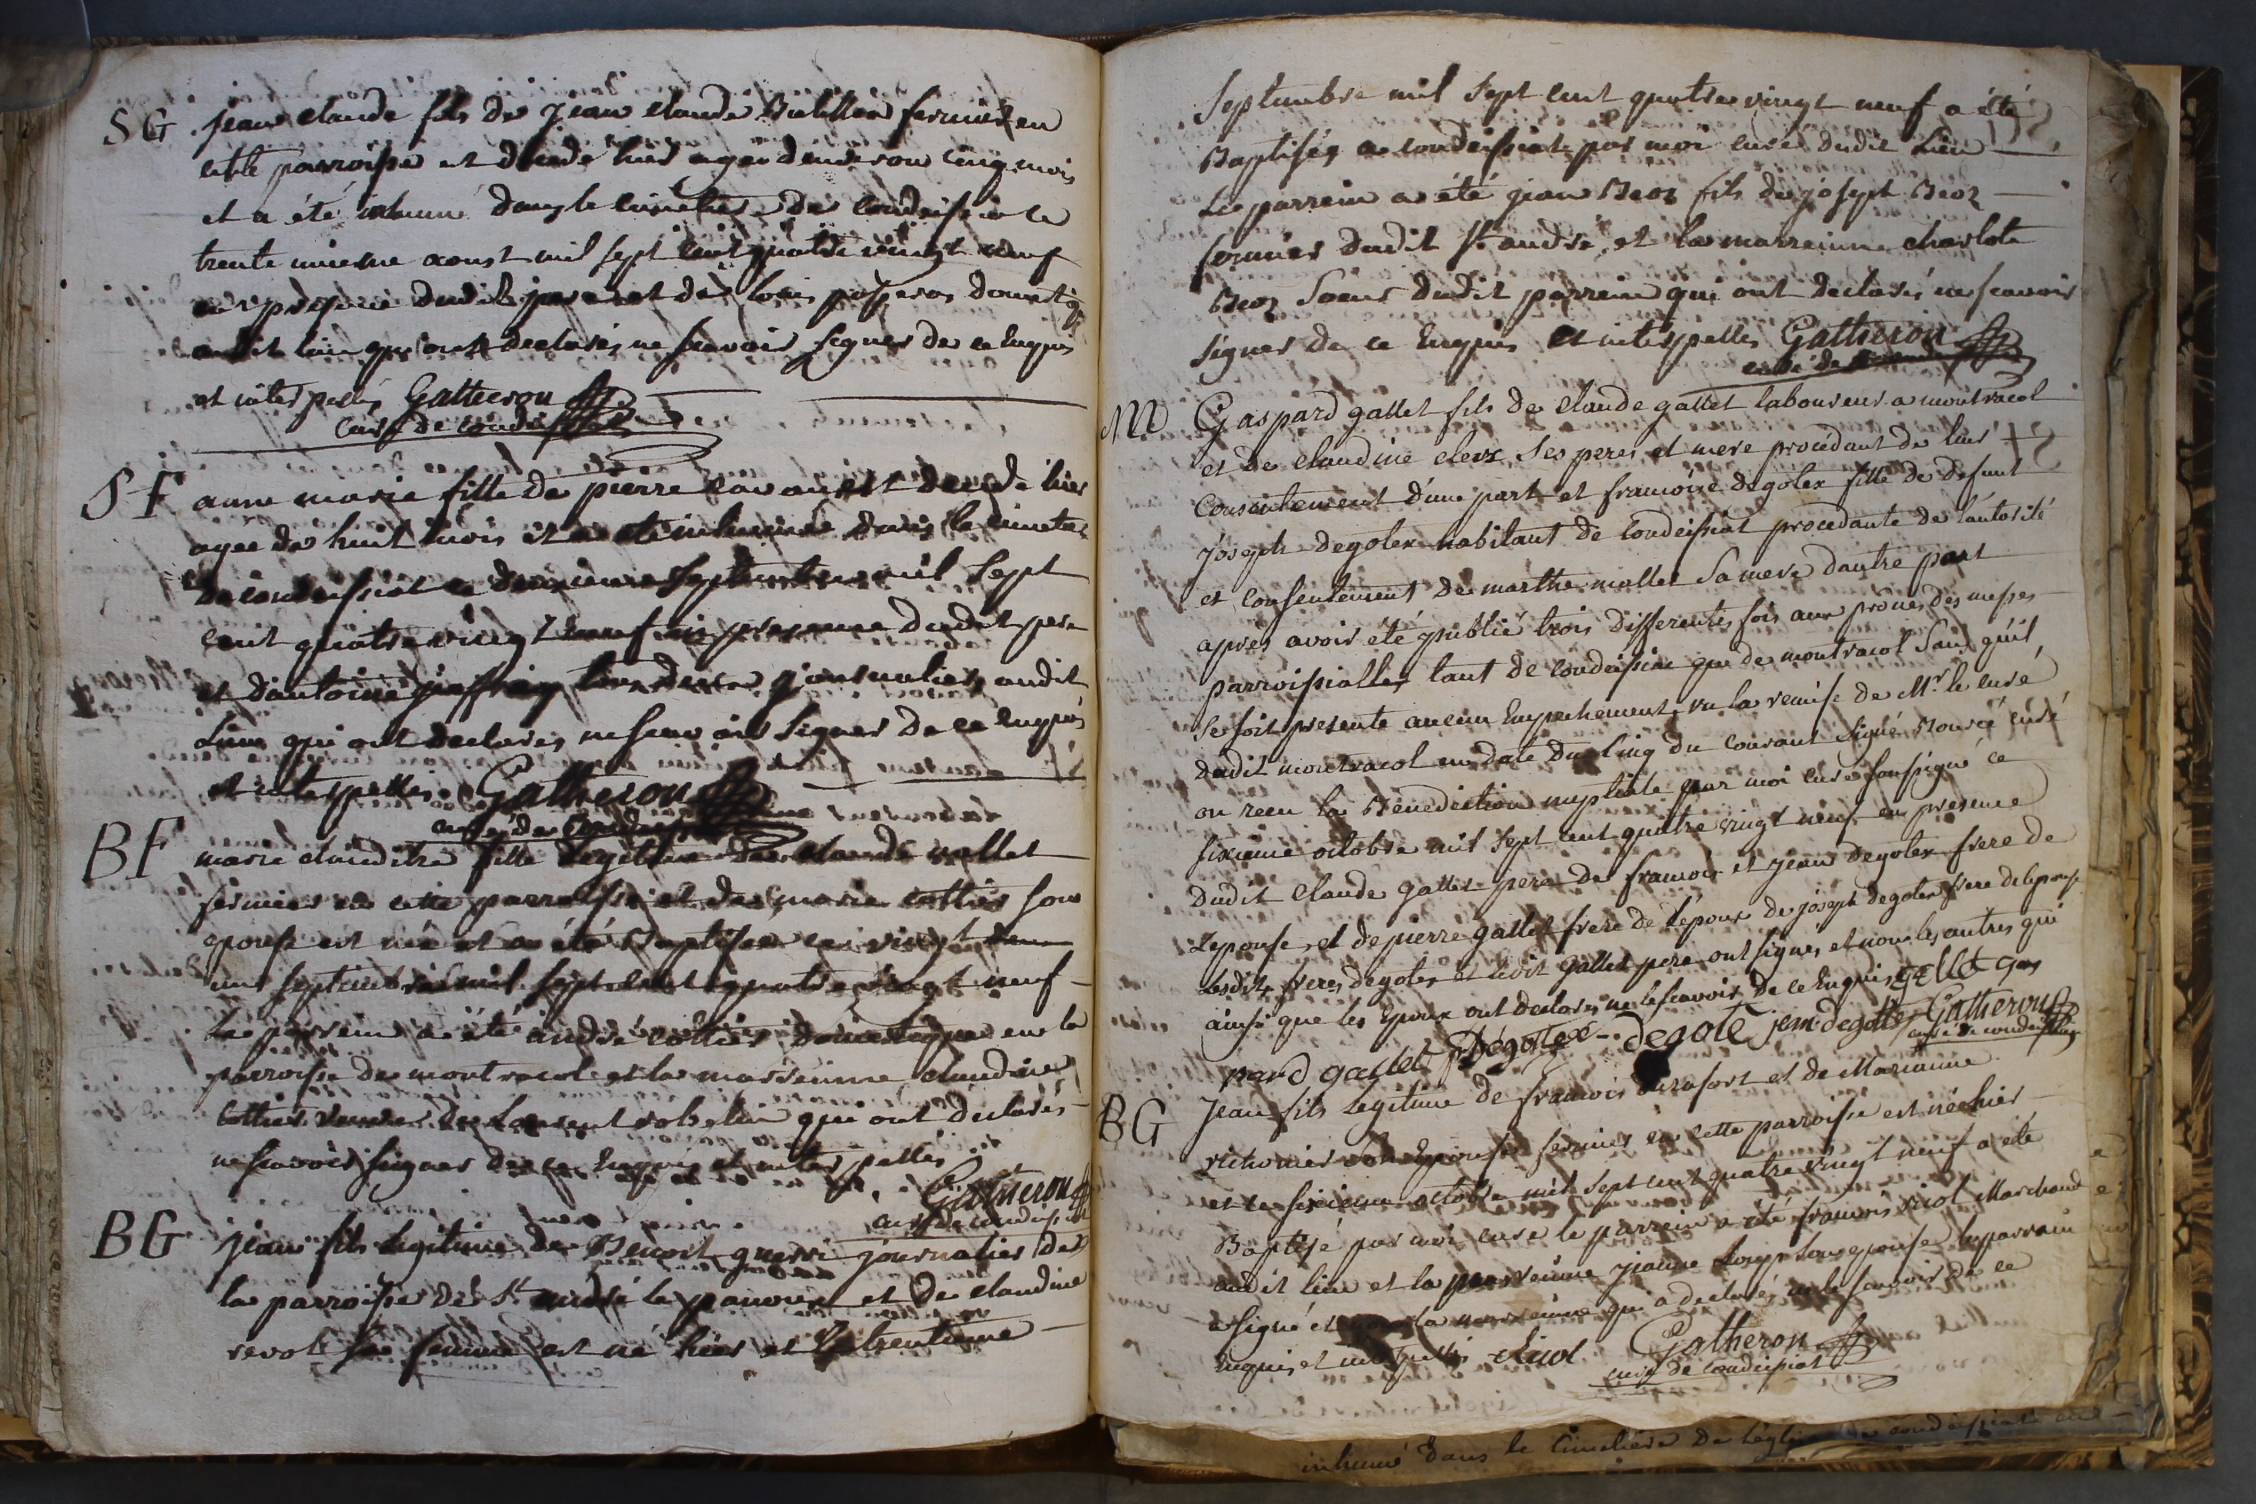 SG jean claude fils de jean claude fermier en
cette parroisse est decedé hier agé d'environ cinq mois
et a été inhumé dans le cimetiere de condeissiat le
trente unieme aoust mil sept cent quatre vingt neuf
en presence dudit pere et de domestiq
audit lieu qui ont declarés ne scavoir signer de ce enquis
et interpellés Gatheron
curé de condeissiat
SF anne marie fille de pierre est decedée hier
agée de huit mois et a eté inhumée dans le cimetier
de condeissiat le septembre mil sept
cent quatre vingt neuf en presence dudit pere
et d'antoine journaliers audit
Lieu qui ont declarés ne scavoir signer de ce enquis
et interpellés Gatheron
curé de
BF marie claudine fille legitime de claude vallet
fermier en cette parroisse et de marie cottier son
epouse est née et a été Baptisée le vingt
une septembre mil sept cent quatre vingt neuf
Le parrein a été andré cottier domestique en la
parroisse de montracol et la marreinne claudine
cottier de Laurent robelin qui ont declarés
ne scavoir signer de ce enquis et interpellés
Gatheron
curé de condeissiat
BG jean fils legitime de Benoit guerri journalier de
la parroisse de St andré le panoux et de claudine
revol sa femme est né hier et le trentieme
Septembre mil sept cent quatre vingt neuf a été
Baptisé a condeissiat par moi curé dudit Lieu
Le parrein a été jean Beoz fils de joseph Beoz
fermier dudit St andré et la marreinne charlote
Beoz Soeur dudit parrein qui ont declarés ne scavoir
signer de ce enquis et interpellés Gatheron
curé de
M Gaspard gallet fils de claude gallet laboureur a montracol
et de claudine clerx ses peres et mere procédant de leur
consentement d'une part et francoise degolex fille de defunt
joseph degolex habitant de condeissiat procedante de l'autorité
et consentement de marthe mallet sa mere d'autre part
apres avoir été publié trois differentes fois aux prones des messes
parroissialles tant de condeissiat que de montracol sans qu'il
se soit presenté aucun empechement, vu la remise de Mr le curé
dudit montracol en date du cinq du courant signé curé
on recu la Benediction nuptiale par moi curé soussigné ce
sixieme octobre mil sept cent quatre vingt neuf en presence
dudit claude gallet pere de francois et jean degolex frere de
L'epouse, et de pierre gallet frere de l'epoux de joseph degolex frere de l'epouse
Lesdits freres degolex et ledit gallet pere ont signés et non les autres qui
ainsi que les epoux ont declarés ne le scavoir de ce enquis gallet gas
pard gallet Dégolex degole jean degolle Gatheron
curé de condeissiat
BG Jean fils legitime de francois durafort et de Marianne
son epouse fermier en cette parroisse est né hier
et le sixieme octobre mil sept cent quatre vingt neuf a été
Baptisé par moi curé le parrein a été francois viol Marchand
audit lieu et la marreinne jeanne son epouse le parrain
a signé et non la marreinne qui a declarés ne le scavoir de ce
enquis et interpellés viol Gatheron
curé de condeissiat
inhumé dans le cimetière de l'eglise de condeissiat